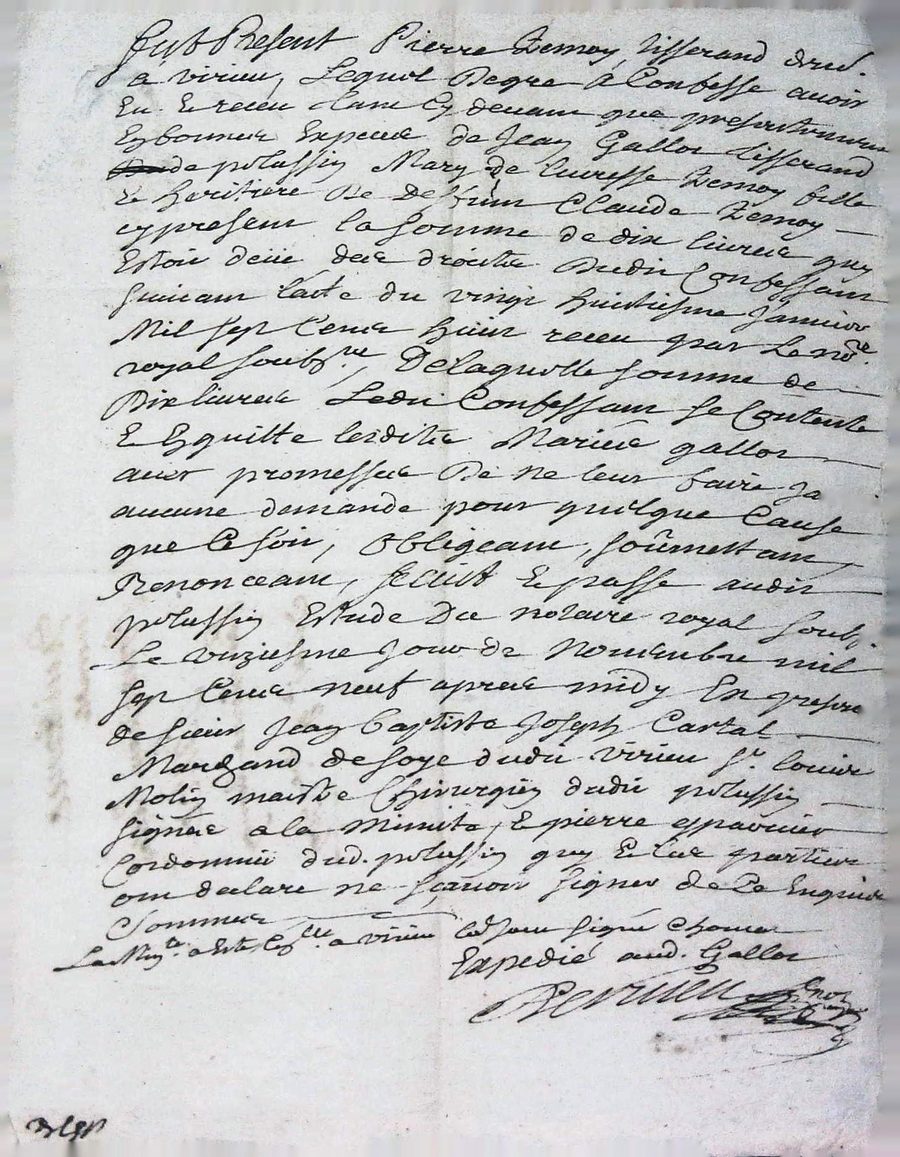 Fust Present Pierre Zemoy tisserand dud.
a virieu, Lequel De gre à Confesse avoir
Eu & receu tant Cy devant que presentement
En bonnes Especes de Jean Gallot tisserand
de polussin Mary de lucresse Zemoy fille
& heritiere De Deffunt Claude Zemoy
cy present la somme de dix livres quy
Estoit deüe des droits Dudit Confessant
suivant l'acte du vingt huictiesme Janvier
Mil sept Cents huit receu par Le no.re
royal soubs.né, De laquelle somme de
Dix livres Ledit Confessant se Contente
& En quitte lesdits Mariés gallot
avec promesses De ne leur faire Ja
aucune demande pour quelque Cause
que Ce soit, obligeant, soûmettant,
Renonceant, faict & passe audit
polussin Estude Du notaire royal soubs.
Le unziesme Jour de Novembre mil
sept Cents neuf apres midy En presence
de sieur Jean Baptiste Joseph Cartal
Marchand de soye dudit virieu S.r louis
Molin maistre Chirurgien dudit polussin
signés a la Minute, & pierre
Cordonnier dud. polussin quy & les parties
ont declare ne sçavoir signer de Ce Enquis
& sommes
La Min.te a Esté Con.llée a virieu led. Jour signé
Expedié aud. Gallot
no.re